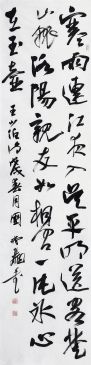 寒雨連江夜入吴平明送客楚
山孤洛陽親友如相問一片冰心
在玉壺 王昌齡詩